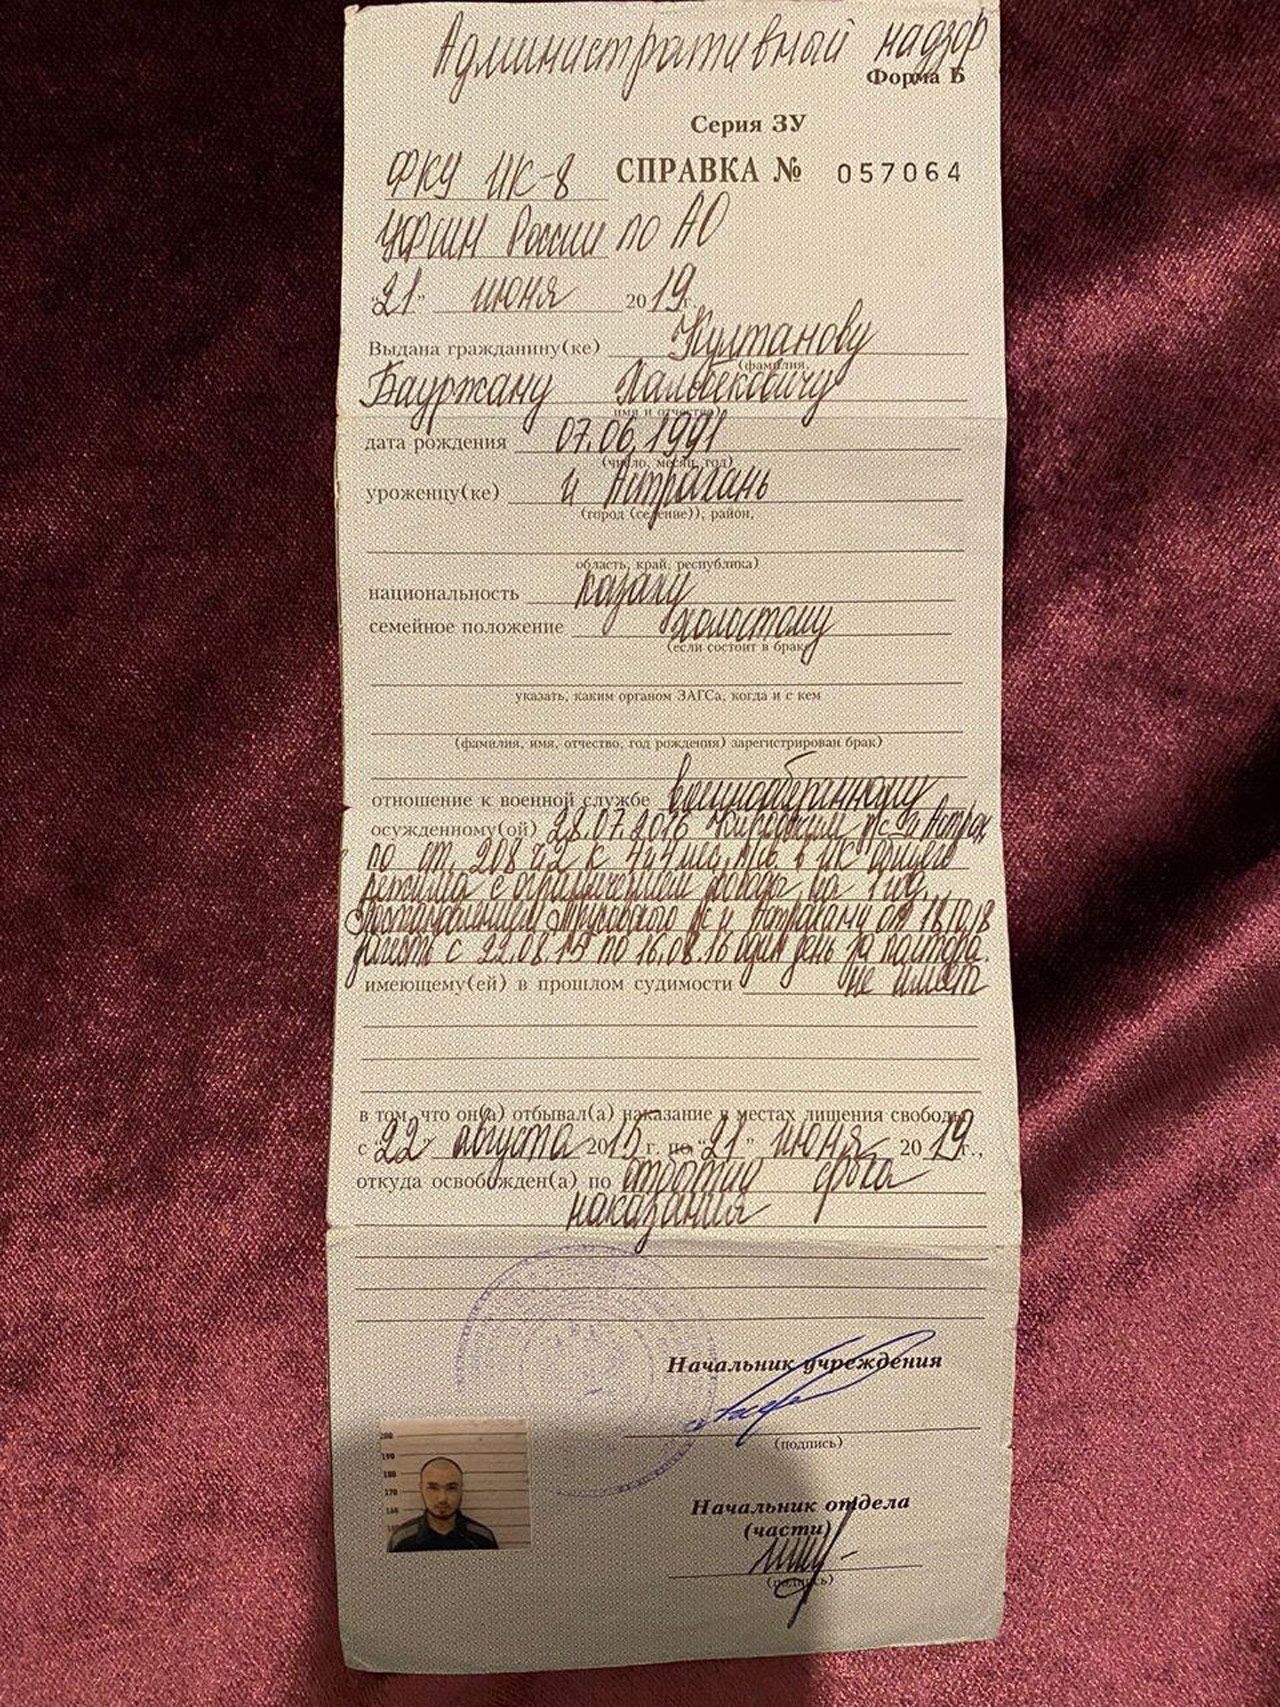 Административный надзор
Форма Б
Серия ЗУ
ФКУ ИК-8 СПРАВКА № 057064
УФСИН России по АО
"21" июня 2019 г.
Выдана гражданину(ке) Култанову
(фамилия,
Бауржану Халыбековичу
имя и отчество)
дата рождения 07.06.1991
(число, месяц, год)
уроженцу(ке) г. Астрахань
(город (селение)), район,
область, край, республика)
национальность казаху
семейное положение холостому
(если состоит в браке
указать, каким органом ЗАГСа, когда и с кем
(фамилия, имя, отчество, год рождения) зарегистрирован брак)
отношение к военной службе военнообязанному
осужденному(ой) 28.07.2016 Кировским р/с г. Астрах
по ст. 208 ч.2 к 4г.4мес. л/св. в ИК общего
режима с ограничением свободы на 1 год.
Постановлением Трусовского р/с г. Астрахани от 18.10.18
зачесть с 22.08.15 по 16.08.16 один день за полтора.
имеющему(ей) в прошлом судимости не имеет
в том, что он(а) отбывал(а) наказание в местах лишения свободы
с "22" августа 2015 г. по "21" июня 2019 г.,
откуда освобожден(а) по отбытию срока
наказания
Начальник учреждения
(подпись)
Начальник отдела
(части)
(подпись)
200
190
180
170
160